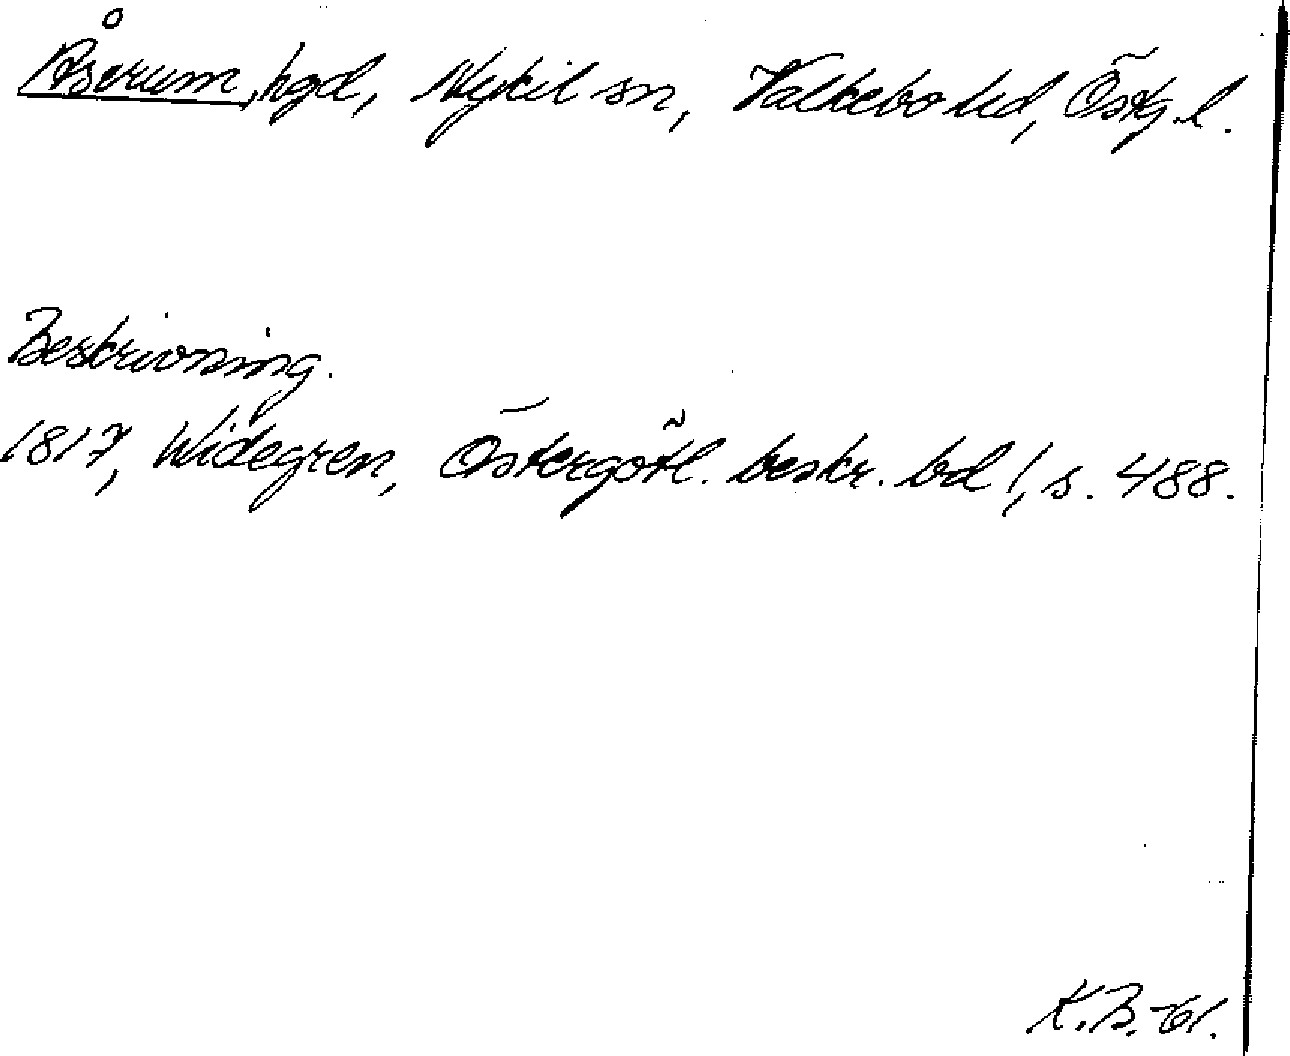 Åserum, hgd, Nykil sn, Valkebo hd, Östg. l.
Beskrivning.
1817, Widegren, Östergötl. beskr. bd 1, s. 488.
K.B. -61.